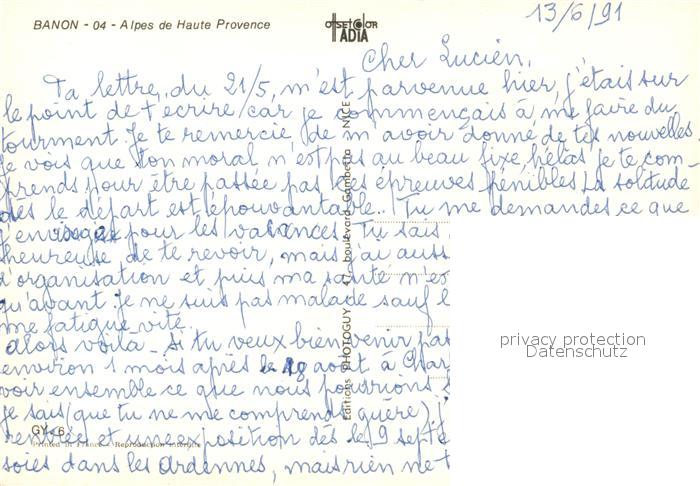 BANON - 04 - Alpes de Haute Provence
OFFSETCOLOR
IADIA
13/6/91
Cher Lucien,
Ta lettre, du 21/5, m'est parvenue hier, j'étais sur
le point de t'ecrire, car je commençais à me faire du
tourment. Je te remercie de m'avoir donné de tes nouvelles
Je vois que ton moral n'est pas au beau fixe, hélas je te com-
prends pour être passée par ces épreuves pénibles La solitude
dès le départ est épouvantable... Tu me demandes ce que
j'envisage pour les vacances. Tu sais
heureuse de te revoir, mais j'ai auss
d'organisation et puis ma santé n'es
qu'avant. Je ne suis pas malade sauf
me fatigue vite.
Alors voilà - si tu veux bien venir pas
environ 1 mois après le 18 août à Char
voir ensemble ce que nous pourrions
Je sais (que tu ne me comprends guère)
rentrées et une exposition dès le 9 sept
soies dans les Ardennes, mais rien ne t
GY 6
Printed in France - Reproduction interdite
Editions PHOTOGUY 41, boulevard Gambetta NICE
privacy protection
Datenschutz